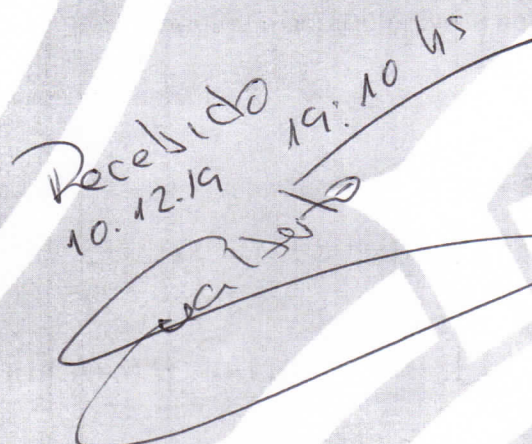 Recebido
10.12.19 19:10 hs